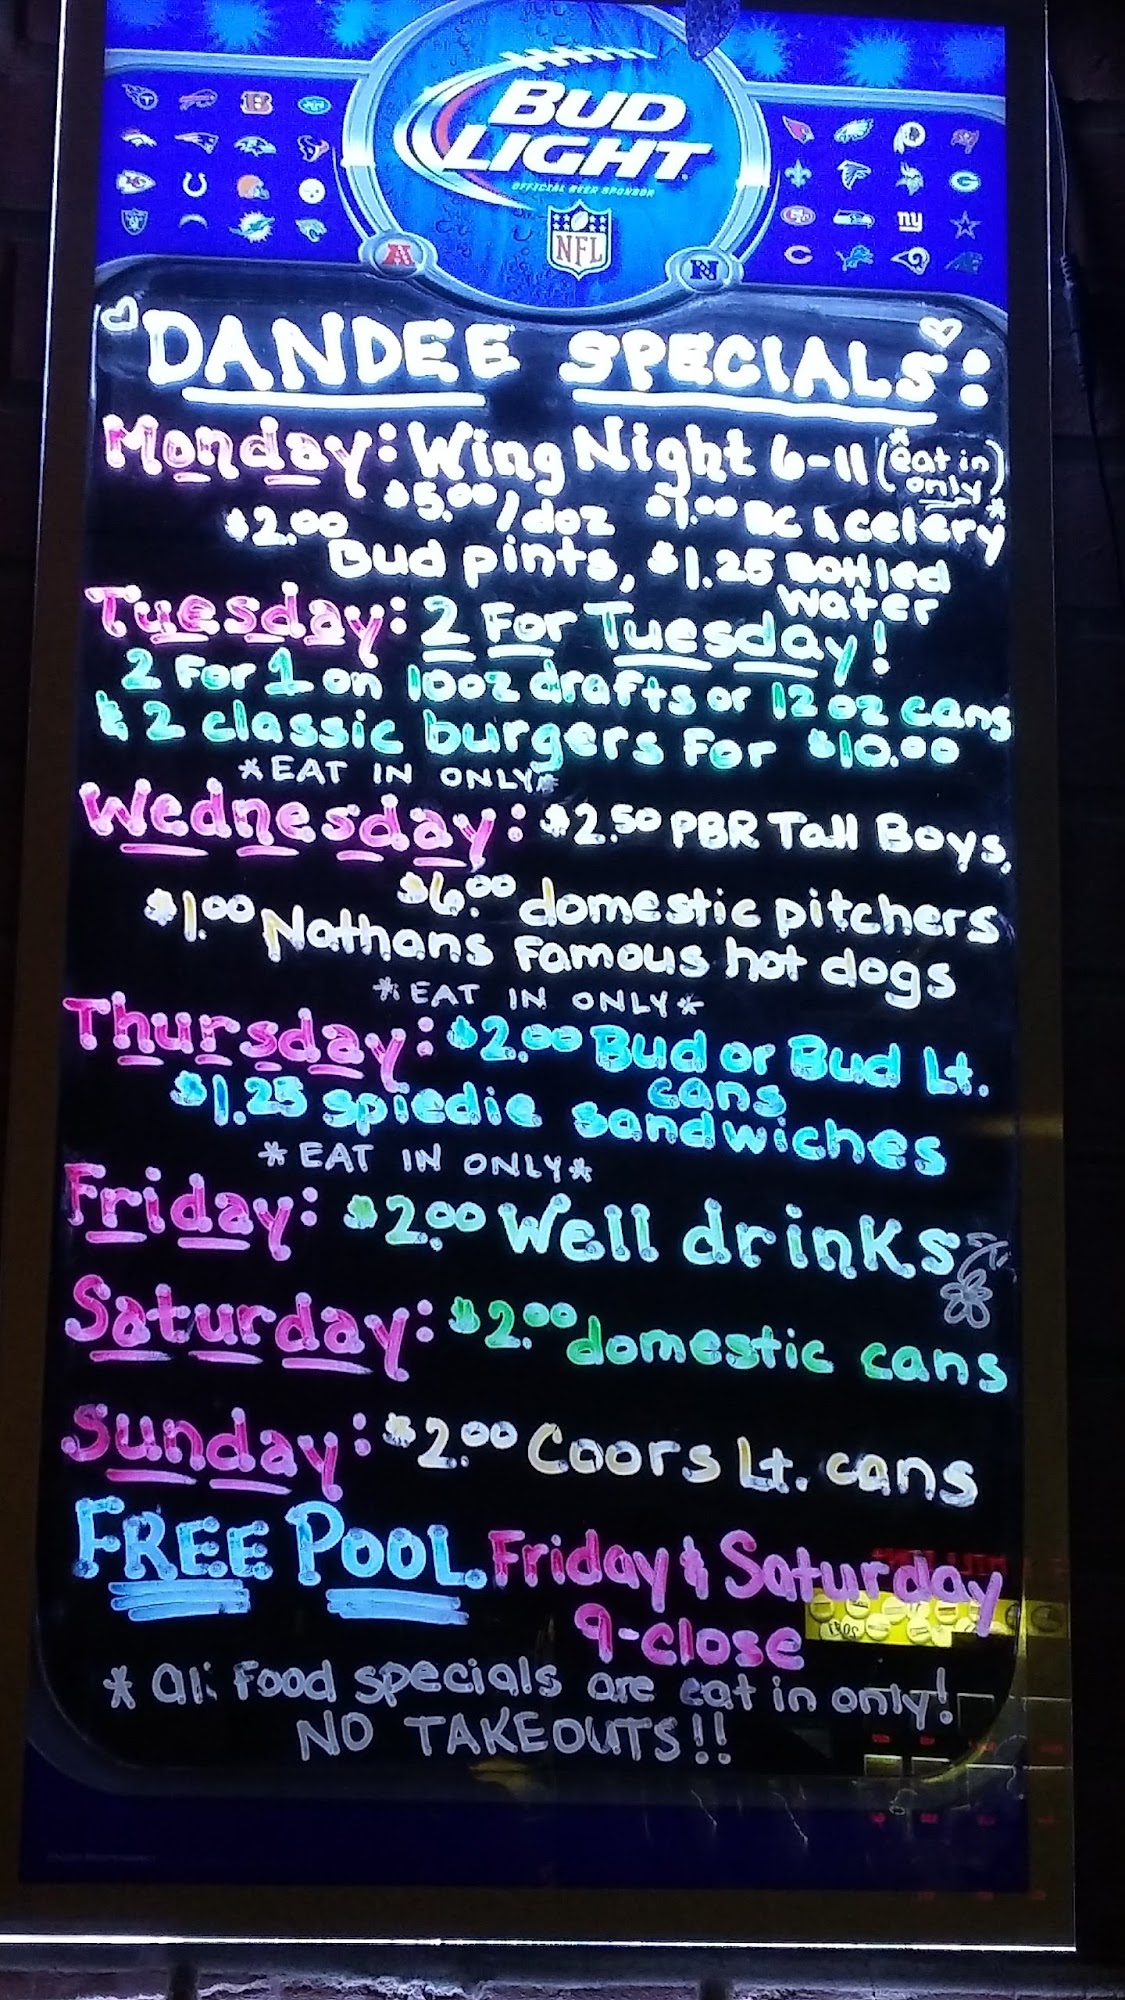 BUD
LIGHT
OFFICIAL BEER SPONSOR
NFL
DANDEE SPECIALS:
Monday: Wing Night 6-11 (*eat in
only*)
$5.00/doz $1.00 BC & celery
$2.00 Bud pints, $1.25 Bottled
water
Tuesday: 2 For Tuesday!
2 For 1 on 10oz drafts or 12oz cans
& 2 classic burgers For $10.00
*EAT IN ONLY*
Wednesday: $2.50 PBR Tall Boys,
$6.00 domestic pitchers
$1.00 Nathans Famous hot dogs
*EAT IN ONLY*
Thursday: $2.00 Bud or Bud Lt.
cans
$1.25 spiedie sandwiches
*EAT IN ONLY*
Friday: $2.00 Well drinks
Saturday: $2.00 domestic cans
Sunday: $2.00 Coors Lt. cans
FREE POOL Friday & Saturday
9-close
* All Food specials are eat in only!
NO TAKEOUTS!!